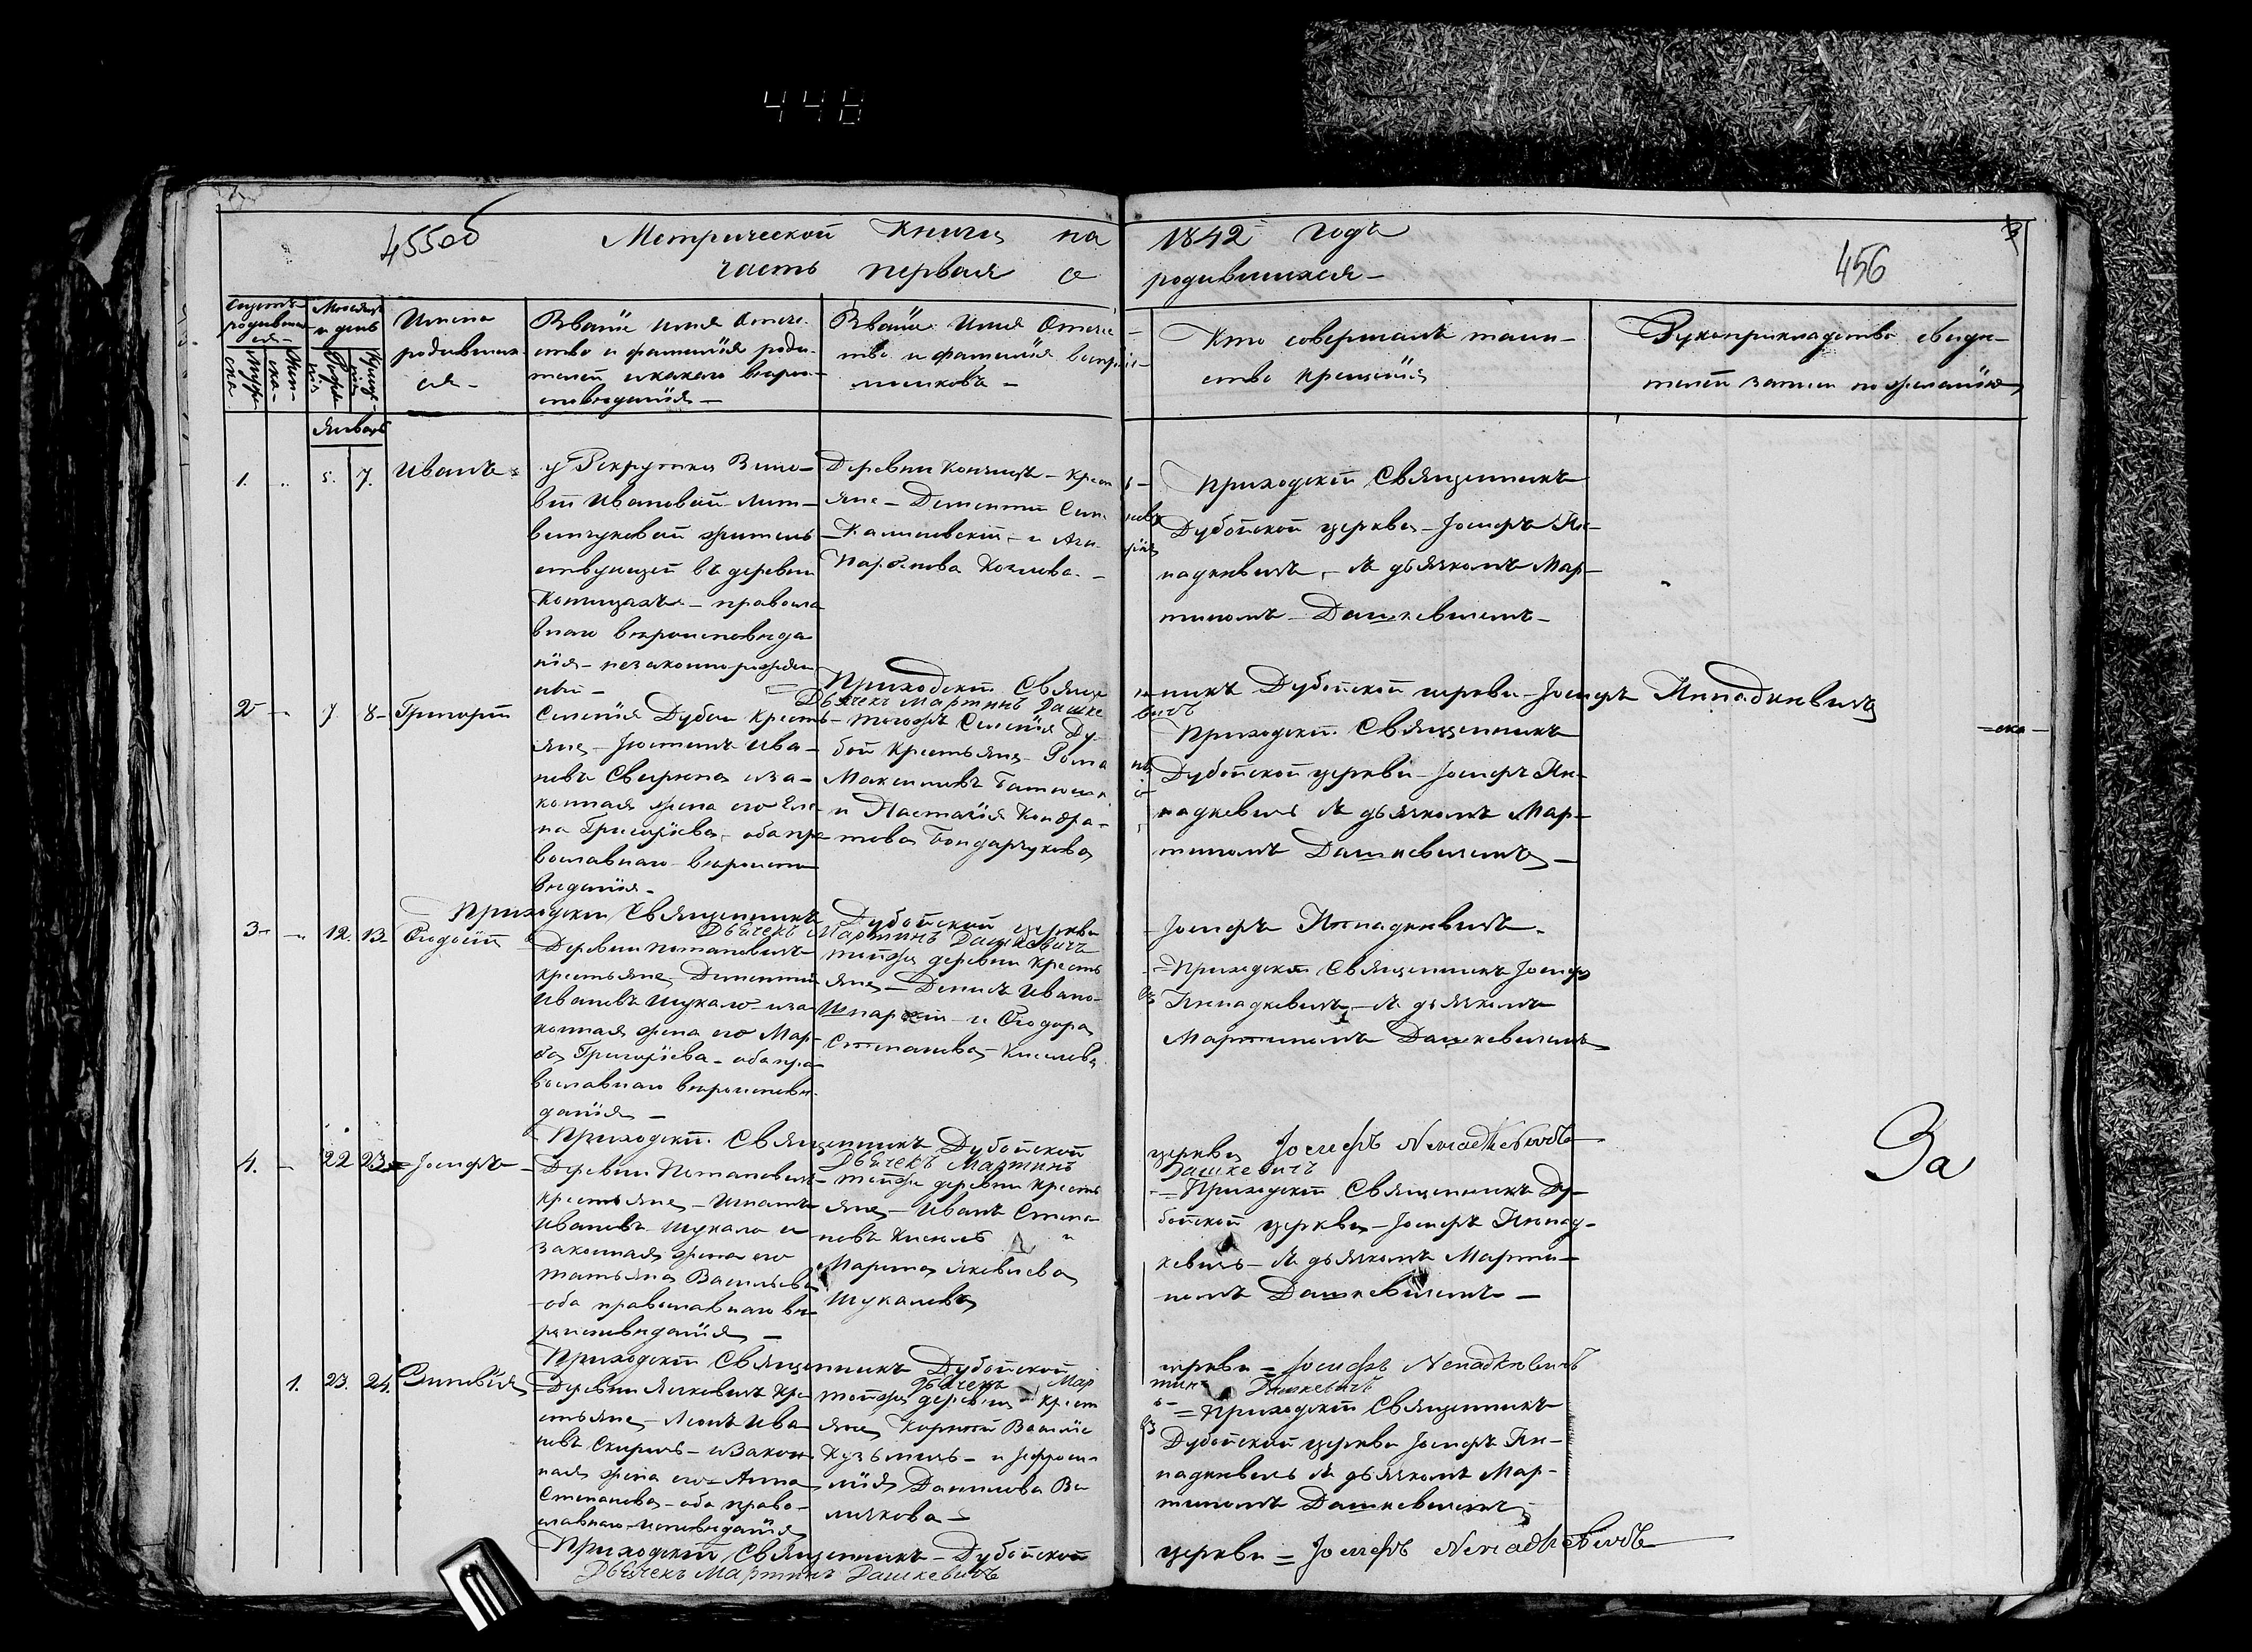 448
455об
Метрической Книги на 1842 годъ
3
456
часть первая о родившихся
Счетъ родившихся
Мѣсяцъ и день
Имена родившихся
Званіе имя Отечество и фамилія родителей и какаго вѣроисповѣданія
Званіе Имя Отечество и фамилія воспріемниковъ
Кто совершалъ таинство крещенія
Рукоприкладство свидѣтелей записи по желанію
Январь
1. 5. 7. Иванъ
у Рекрутки Зино-
віи Ивановой Лит-
винчуковой житель
ствующей въ деревни
православ
внаго вѣроисповѣда
нія незаконнорожден
ный
Деревни крестьяне Дементій
Парфенова
Приходскій Священникъ
Дубойской церкви Іосифъ Не-
надкевичъ, съ дьячкомъ Мар-
тиномъ Дашкевичемъ
Приходскій Священникъ Дубойской церкви Іосифъ Ненадкевичъ
Дьячекъ Мартинъ Дашкевичъ
2 7 8 Григорій
Селенія Дубои Кресть
яне Устинъ Ива-
новъ и за-
конная жена его Еле
на Григоріева оба пра
вославнаго вѣроиспо
вѣданія
тогожъ Селенія Ду-
бои Крестьяне Рома
Максимовъ
и Настасія Кондра-
това Бондарчукова
Приходскій Священникъ
Дубойской церкви Іосифъ Не-
надкевичъ съ дьячкомъ Мар-
тиномъ Дашкевичемъ
Приходскій Священникъ Дубойской церкви Іосифъ Ненадкевичъ
Дьячекъ Мартинъ Дашкевичъ
3 12. 13 Ѳеодосій
Деревни Потаповичъ
крестьяне Дементій
Ивановъ Шукало и за
конная жена его Мар
ѳа Григоріева оба пра
вославнаго вѣроисповѣ
данія
тойже деревни кресть
яне Денисъ Ивано
и Ѳеодора
Степанова Киселева
Приходскій Священникъ Іосифъ
Ненадкевичъ съ дьячкомъ
Мартиномъ Дашкевичемъ
Приходскій Священникъ Дубойской церкви Іосифъ Ненадкевичъ
Дьячекъ Мартинъ Дашкевичъ
4. 22 23 Іосифъ
Деревни Потаповичъ
крестьяне Игнатъ
Ивановъ Шукало и
законная жена его
Татьяна Васильева
оба православнаго вѣ
роисповѣданія
тойже деревни кресть
яне Иванъ Степа
новъ Кисель и
Марина
Шукалова
Приходскій Священникъ Ду-
бойской церкви Іосифъ Ненад-
кевичъ съ дьячкомъ Марти-
номъ Дашкевичемъ
За
Приходскій Священникъ Дубойской церкви Іосифъ Ненадкевичъ
Дьячекъ Мартинъ Дашкевичъ
1. 23. 24. Зиновія
Деревни Кре
стьяне Леонъ Ива
новъ и закон
ная жена его Анна
Степанова оба право-
славнаго исповѣданія
тойже деревни Крест
яне Василіе
Кузьмичъ и Ефроси
нія Данилова
Приходскій Священникъ
Дубойской церкви Іосифъ Не-
надкевичъ съ дьячкомъ Мар-
тиномъ Дашкевичемъ
Приходскій Священникъ Дубойской церкви Іосифъ Ненадкевичъ
Дьячекъ Мартинъ Дашкевичъ